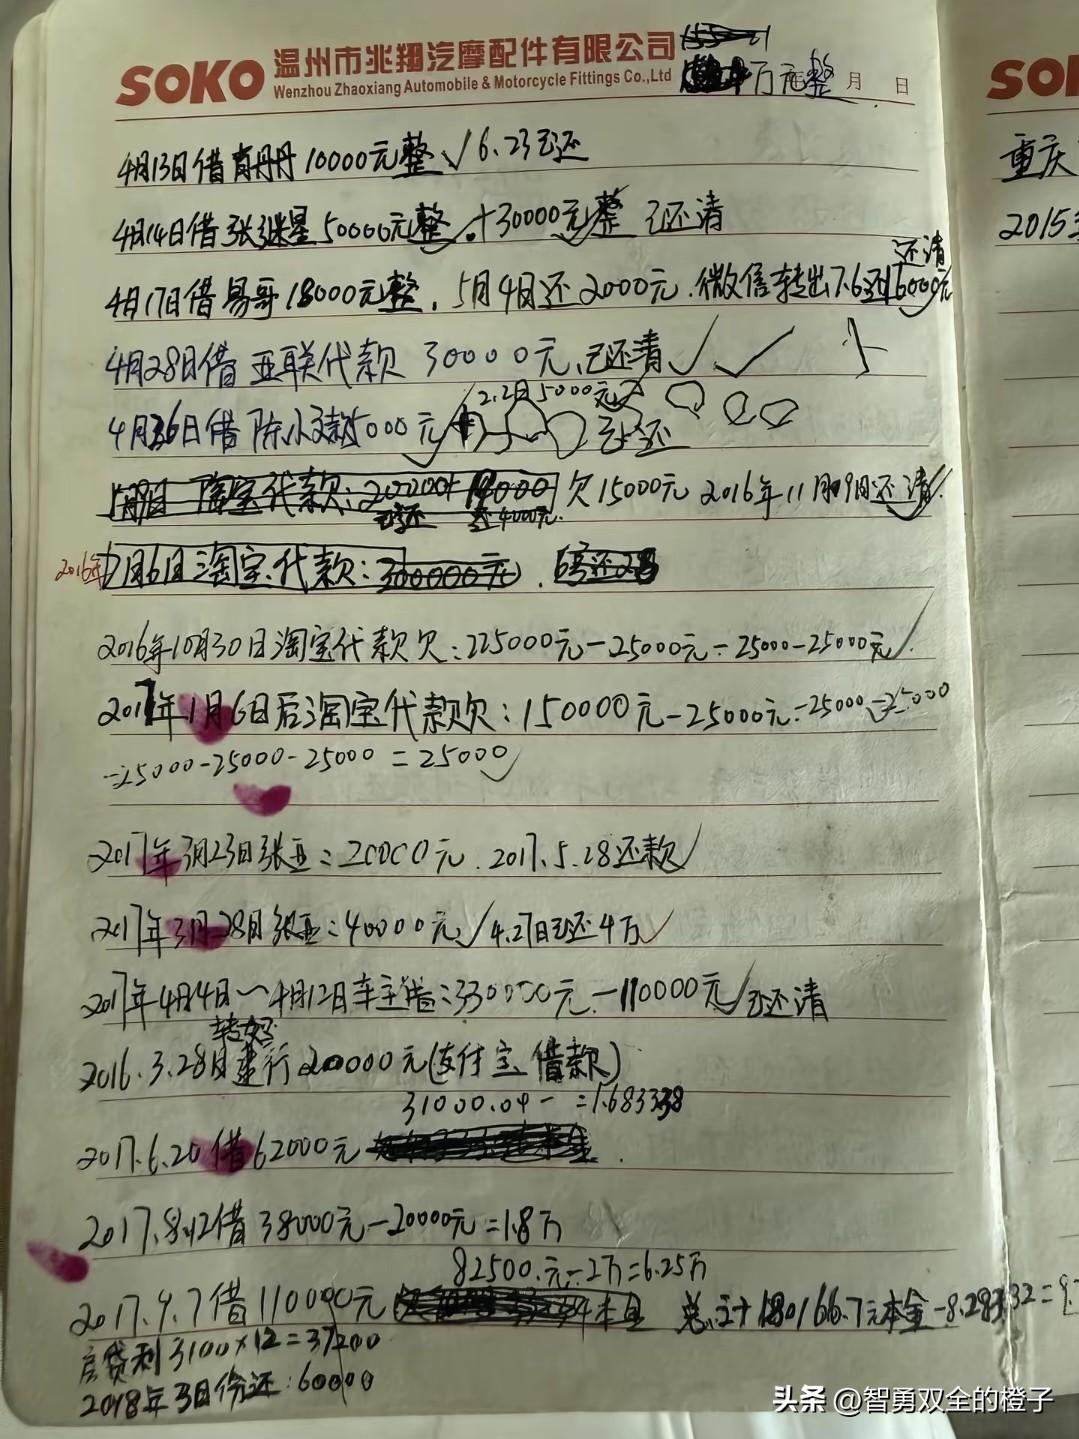 SOKO 温州市兆翔汽摩配件有限公司
Wenzhou Zhaoxiang Automobile & Motorcycle Fittings Co.,Ltd
万元整 月 日
4月13日借肖丹丹10000元整√6.23已还
4月14日借张继星50000元整+30000元整 已还清
还清
4月17日借易哥18000元整,5月4日还2000元.微信转出7.6还16000元
4月28日借亚联代款30000元,已还清√√
2.2日5000元
4月26日借陈小 5000元+ 已还
淘宝代款: 欠15000元 2016年11月09日还清√
已还 还4000元.
2016年7月6日淘宝代款:300000元.
2016年10月30日淘宝代款欠:225000元-25000元-25000-25000元√
2017年1月6日后淘宝代款欠:150000元-25000元-25000-25000
-25000-25000-25000=25000√
2017年3月23日张亚:20000元.2017.5.28还款√
2017年3月28日张亚:40000元√4.27日已还4万√
2017年4月4日~4月12日车主借:330000元-110000元√已还清
转好
2016.3.28日建行200000元(支付宝借款)
31000.04- =1.683338
2017.6.20借62000元
2017.8.12借38000元-20000元=1.8万
82500.元-2万=6.25万
2017.9.7借110000元 本息 总计180166.7元本金-8.28332=9.
房贷利3100×12=37200
2018年3日份还:60000
SO
重庆
2015
头条@智勇双全的橙子